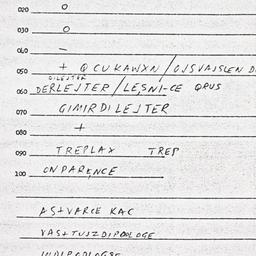 020 O
030 O
040 –
050 + QCUKAWXN / OJSVAJSLEN D
DILEJTER
060 DERLEJTER / LESNI-CE QRUS
070 GIMIRDILEJTER
080 +
090 TREPLAX TREP
100 ONPARENCE
AS+VARCE KAC
VAS+TUSZDIPOOLOGE